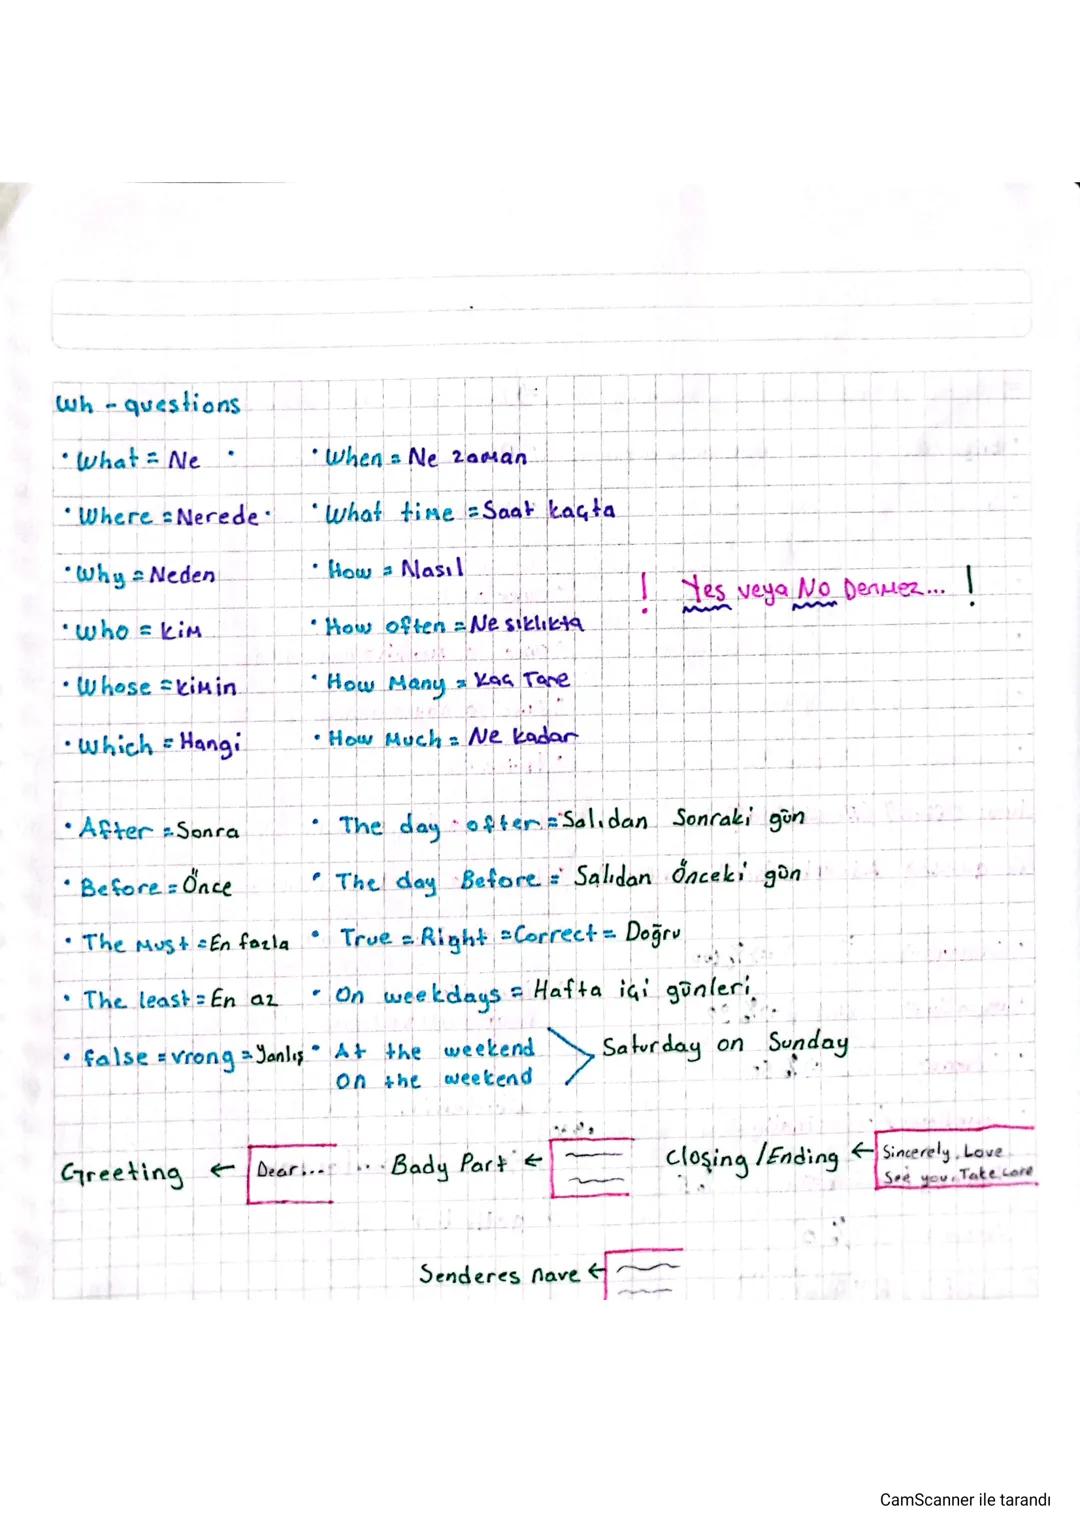 Wh - questions
• What = Ne • When = Ne zaman
• Where = Nerede • What time = Saat kaçta
• Why = Neden • How = Nasıl
! Yes veya No Denmez... !
• Who = kim • How often = Ne sıklıkta
• Whose = kimin • How Many = kaç Tane
• Which = Hangi • How Much = Ne kadar
• After = Sonra • The day after = Salıdan Sonraki gün
• Before = Önce • The day Before = Salıdan Önceki gün
• The Must = En fazla • True = Right = Correct = Doğru
• The least = En az • On weekdays = Hafta içi günleri
• false = vrong = Yanlış • At the weekend Saturday on Sunday
On the weekend
Greeting ← Dear... ... Bady Part ← Closing / Ending ← Sincerely, Love
See you, Take care
Senderes nave ←
CamScanner ile tarandı